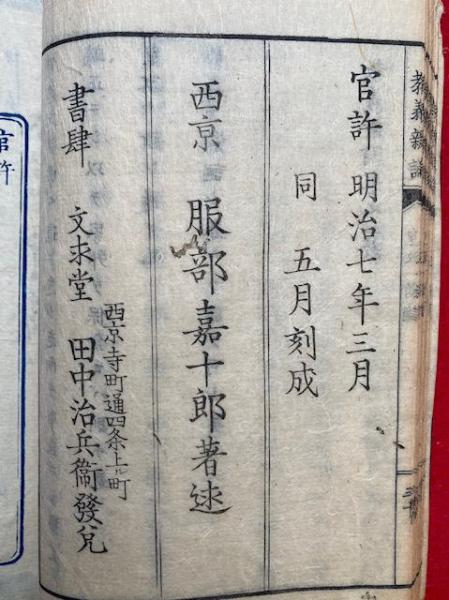 教義新論
官許 明治七年三月
同 五月刻成
西京 服部嘉十郎著述
西京寺町通四条上ル町
書肆 文求堂 田中治兵衞發兌
官許